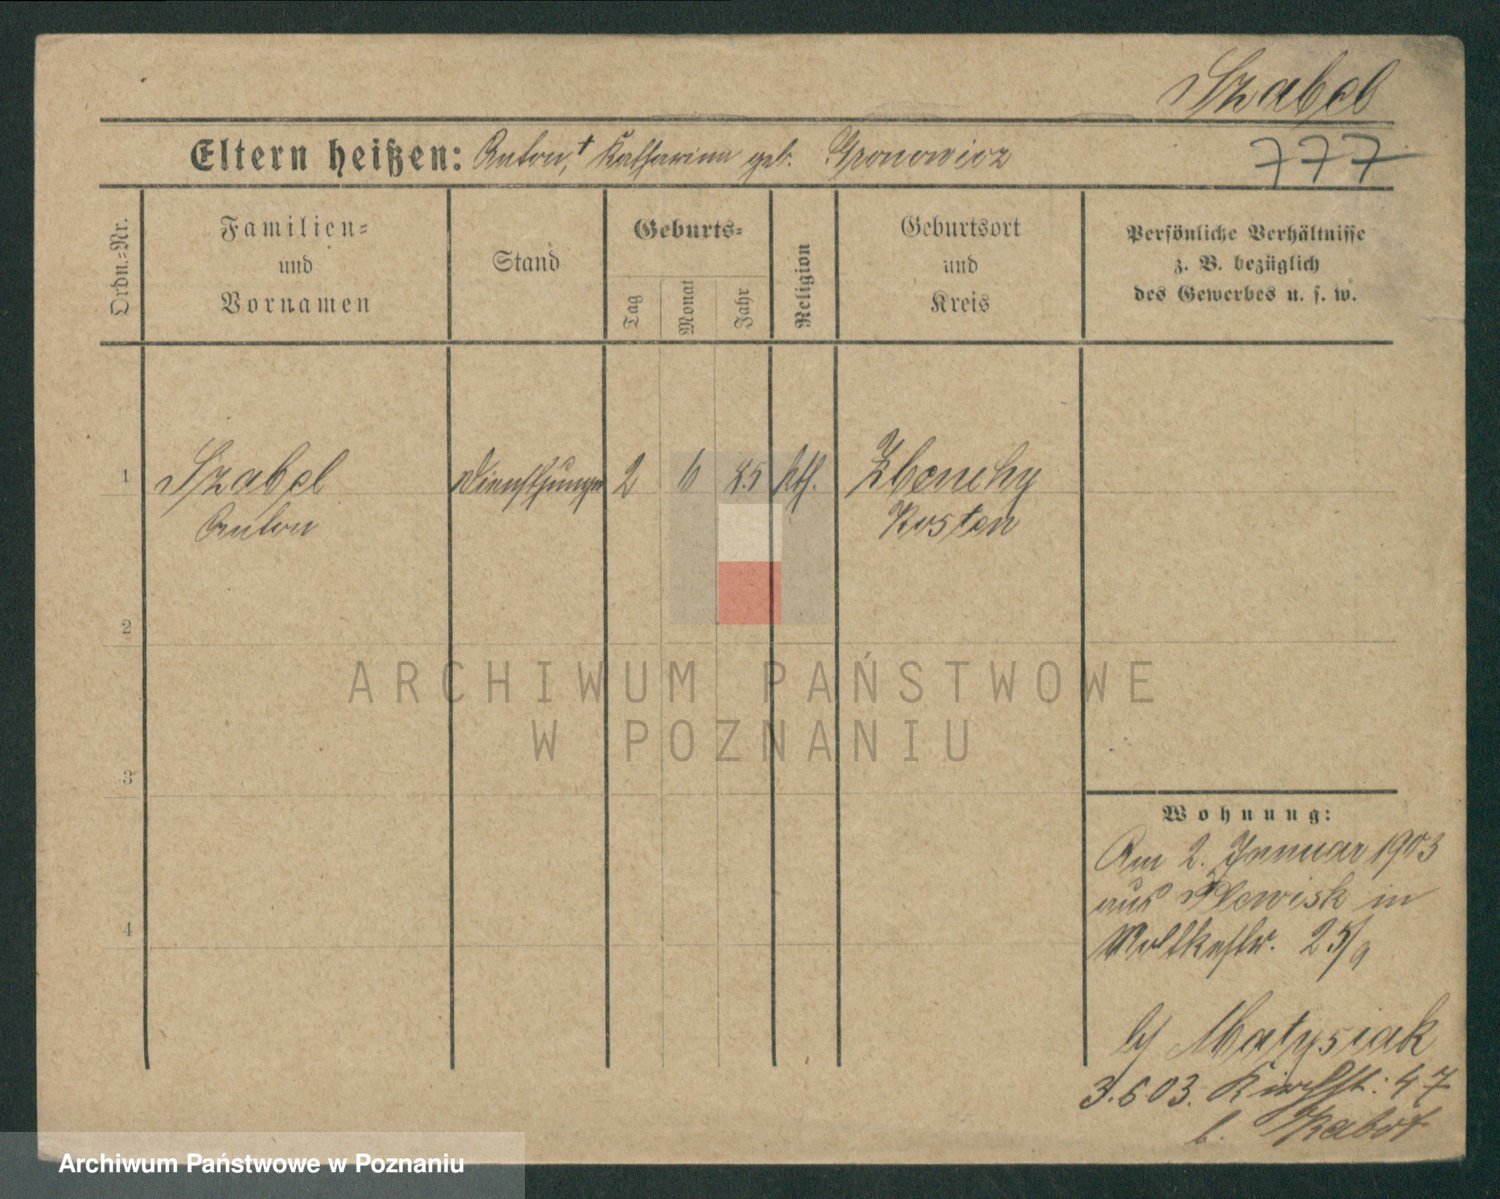 Szabel
Eltern heißen: Anton,† Katharina geb. Gronowicz
777
Ordn.=Nr.
Familien=
und
Vornamen
Stand
Geburts=
Tag
Monat
Jahr
Religion
Geburtsort
und
Kreis
Persönliche Verhältnisse
z. B. bezüglich
des Gewerbes u. s. w.
1 Szabel Dienstjunge 2 6 85 kth. Zbenchy
Anton Kosten
2
3
4
ARCHIWUM PAŃSTWOWE
W POZNANIU
Wohnung:
Am 2. Januar 1903
aus Plewisk in
Moltkestr. 25/9
b/ Matysiak
3.6 03. Kirchst: 47
b.
Archiwum Państwowe w Poznaniu